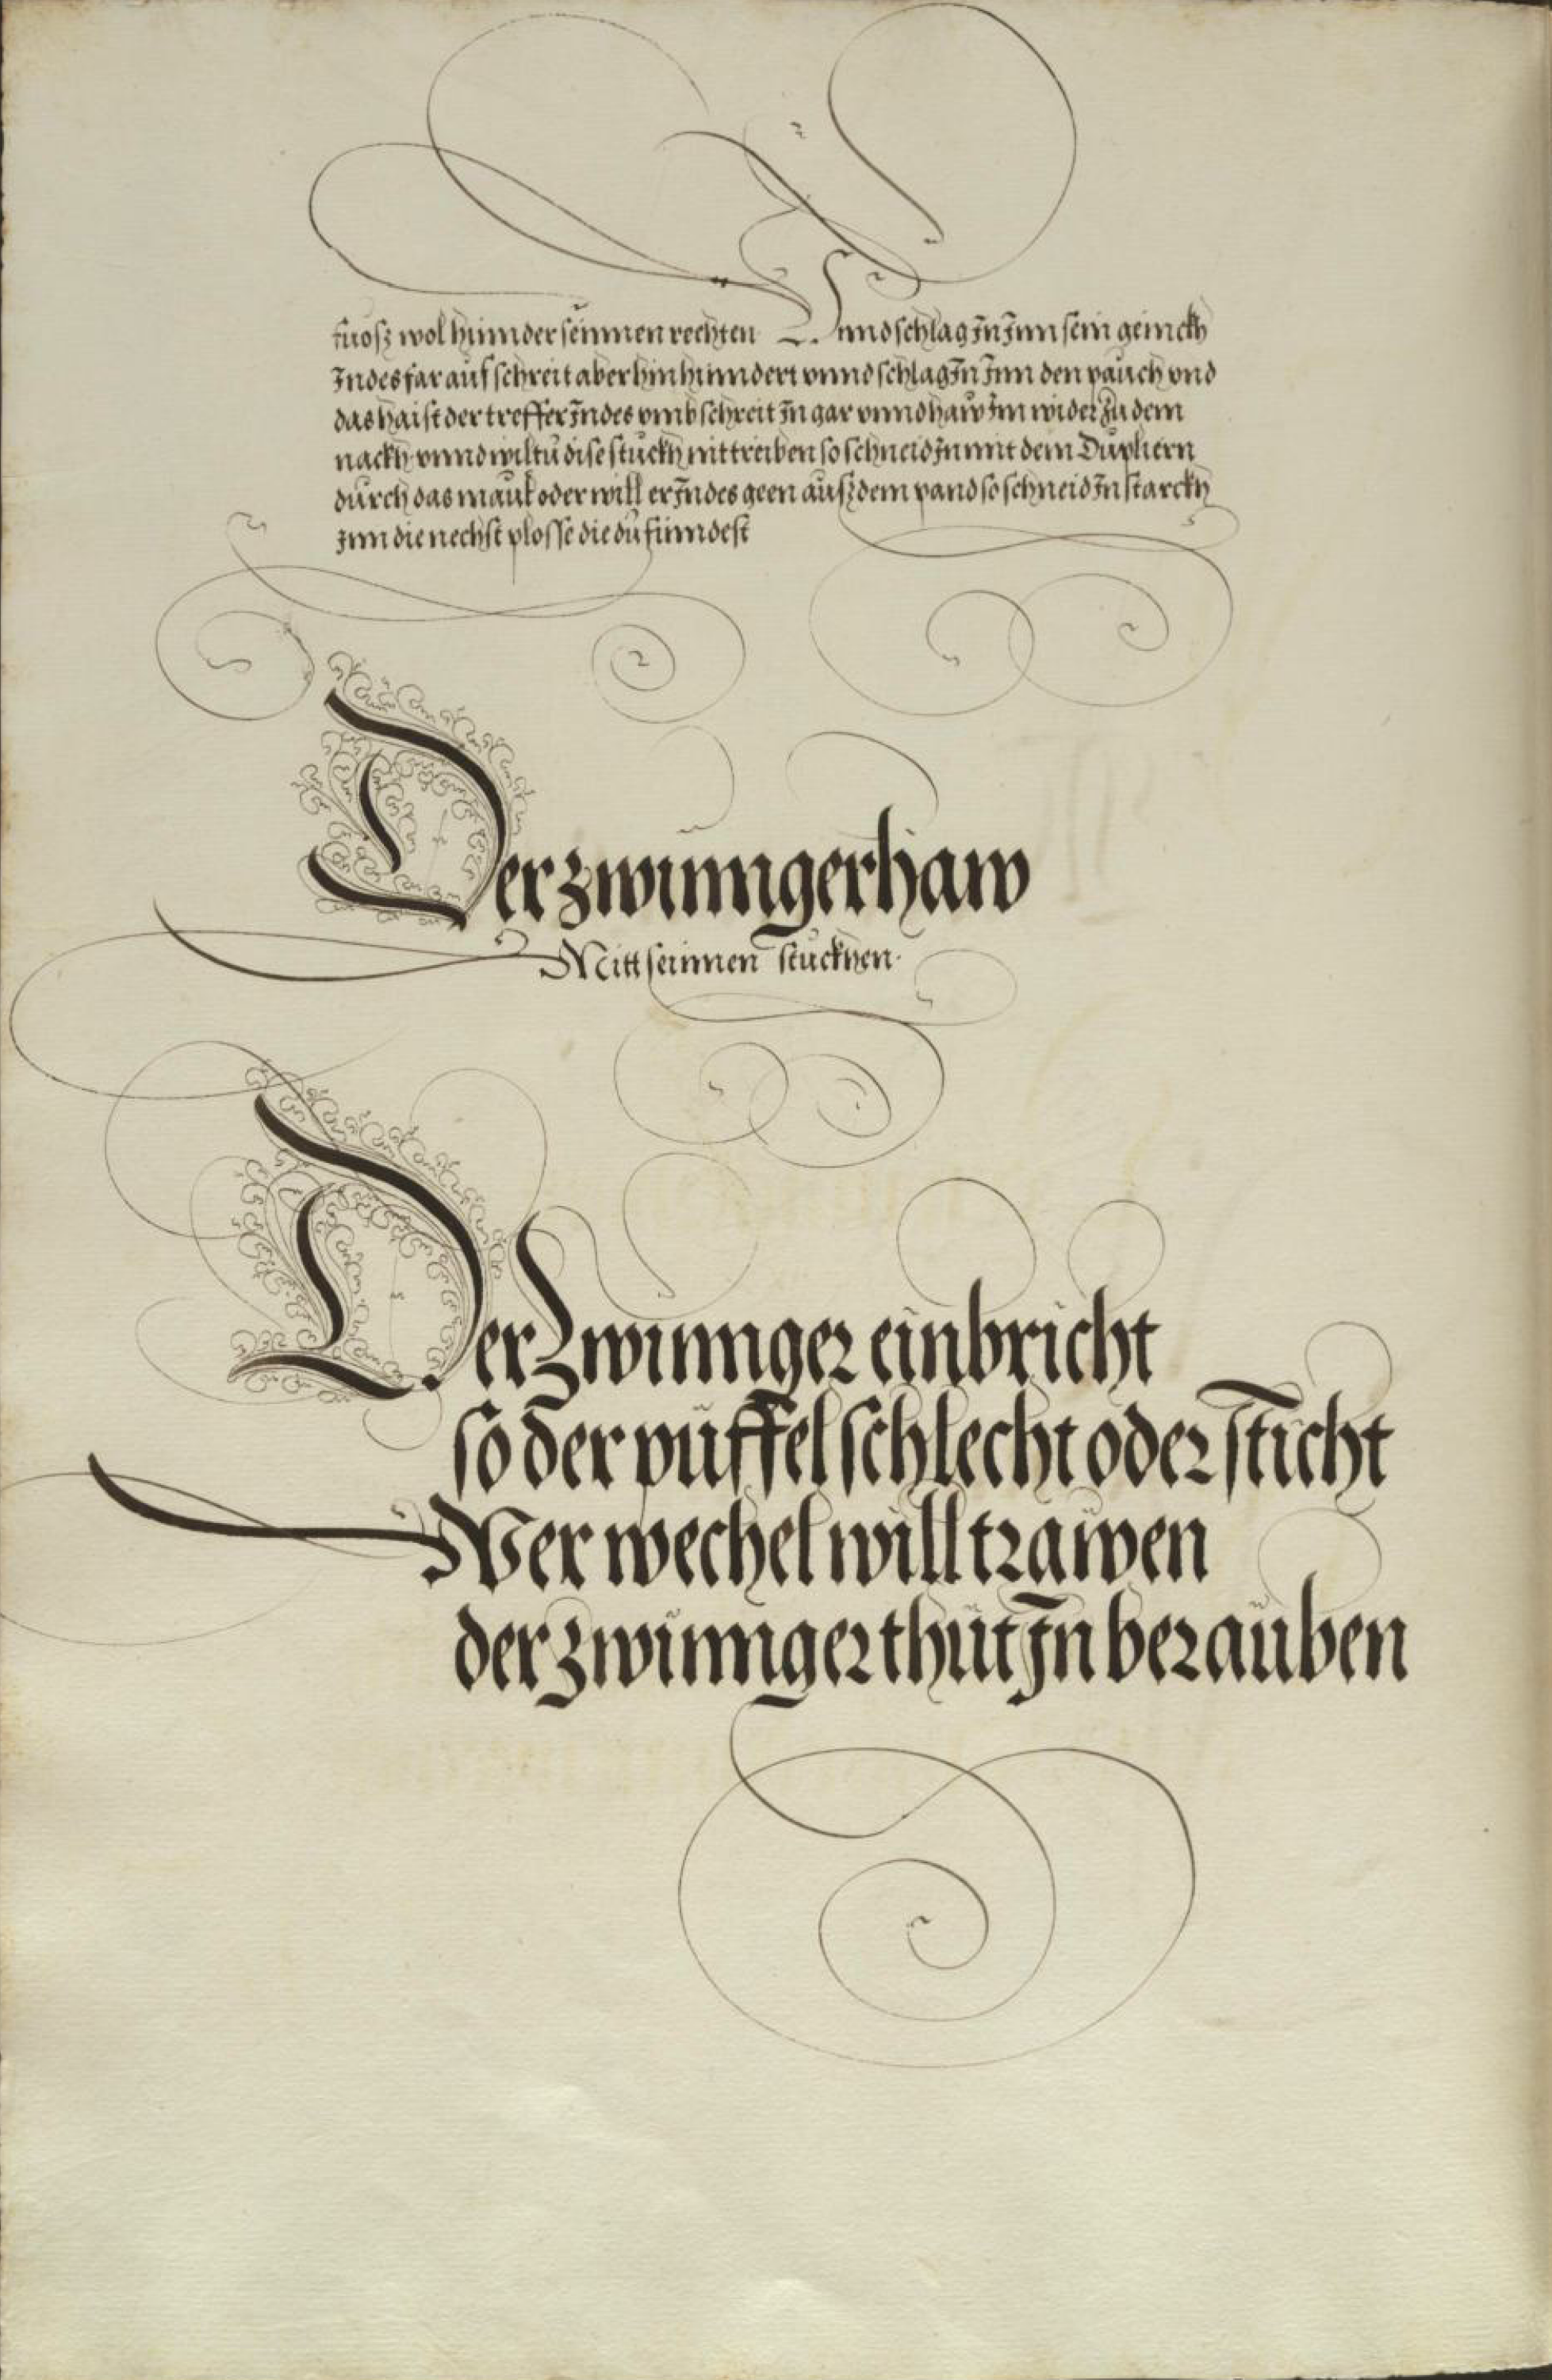 fuosz wol hinnder seinnen rechten Vnnd schlag Jn Jnn sein geinckh
Jndes far auf schreit aber hin hinndert vnnd schlag Jn Jnn den pauch vnd
das haist der treffer Jndes vmbschreit Jn gar vnnd haw Jm wider zu dem
nackh vnnd wiltu dise stuckh nit treiben so schneid Jn mit dem Dupliern
durch das maul oder will er Jndes geen ausz dem pand so schneid Jn starckh
Jnn die nechst plosse die du finndest
Der zwinngerhaw
Mitt seinnen stuckhen.
Der Zwinnger einbricht
so der püffel schlecht oder sticht
Wer wechel will trawen
der zwinnger thut Jn berauben